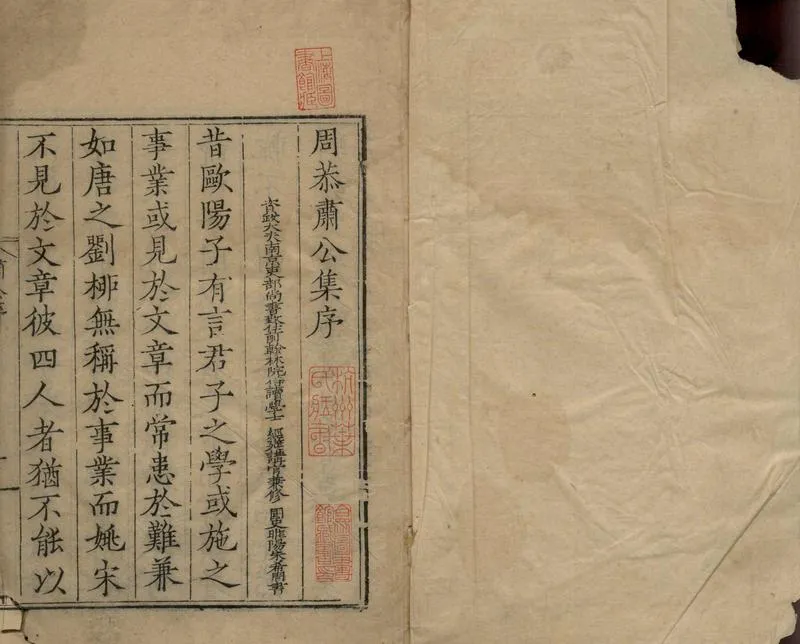 上海圖書館藏
周恭肅公集序
杭州葉氏藏書
資政大夫南京吏部尚書致仕前翰林院侍讀學士 經筵講官兼修 國史睢陽朱希周書
昔歐陽子有言君子之學或施之
事業或見於文章而常患於難兼
如唐之劉柳無稱於事業而姚宋
不見於文章彼四人者猶不能以